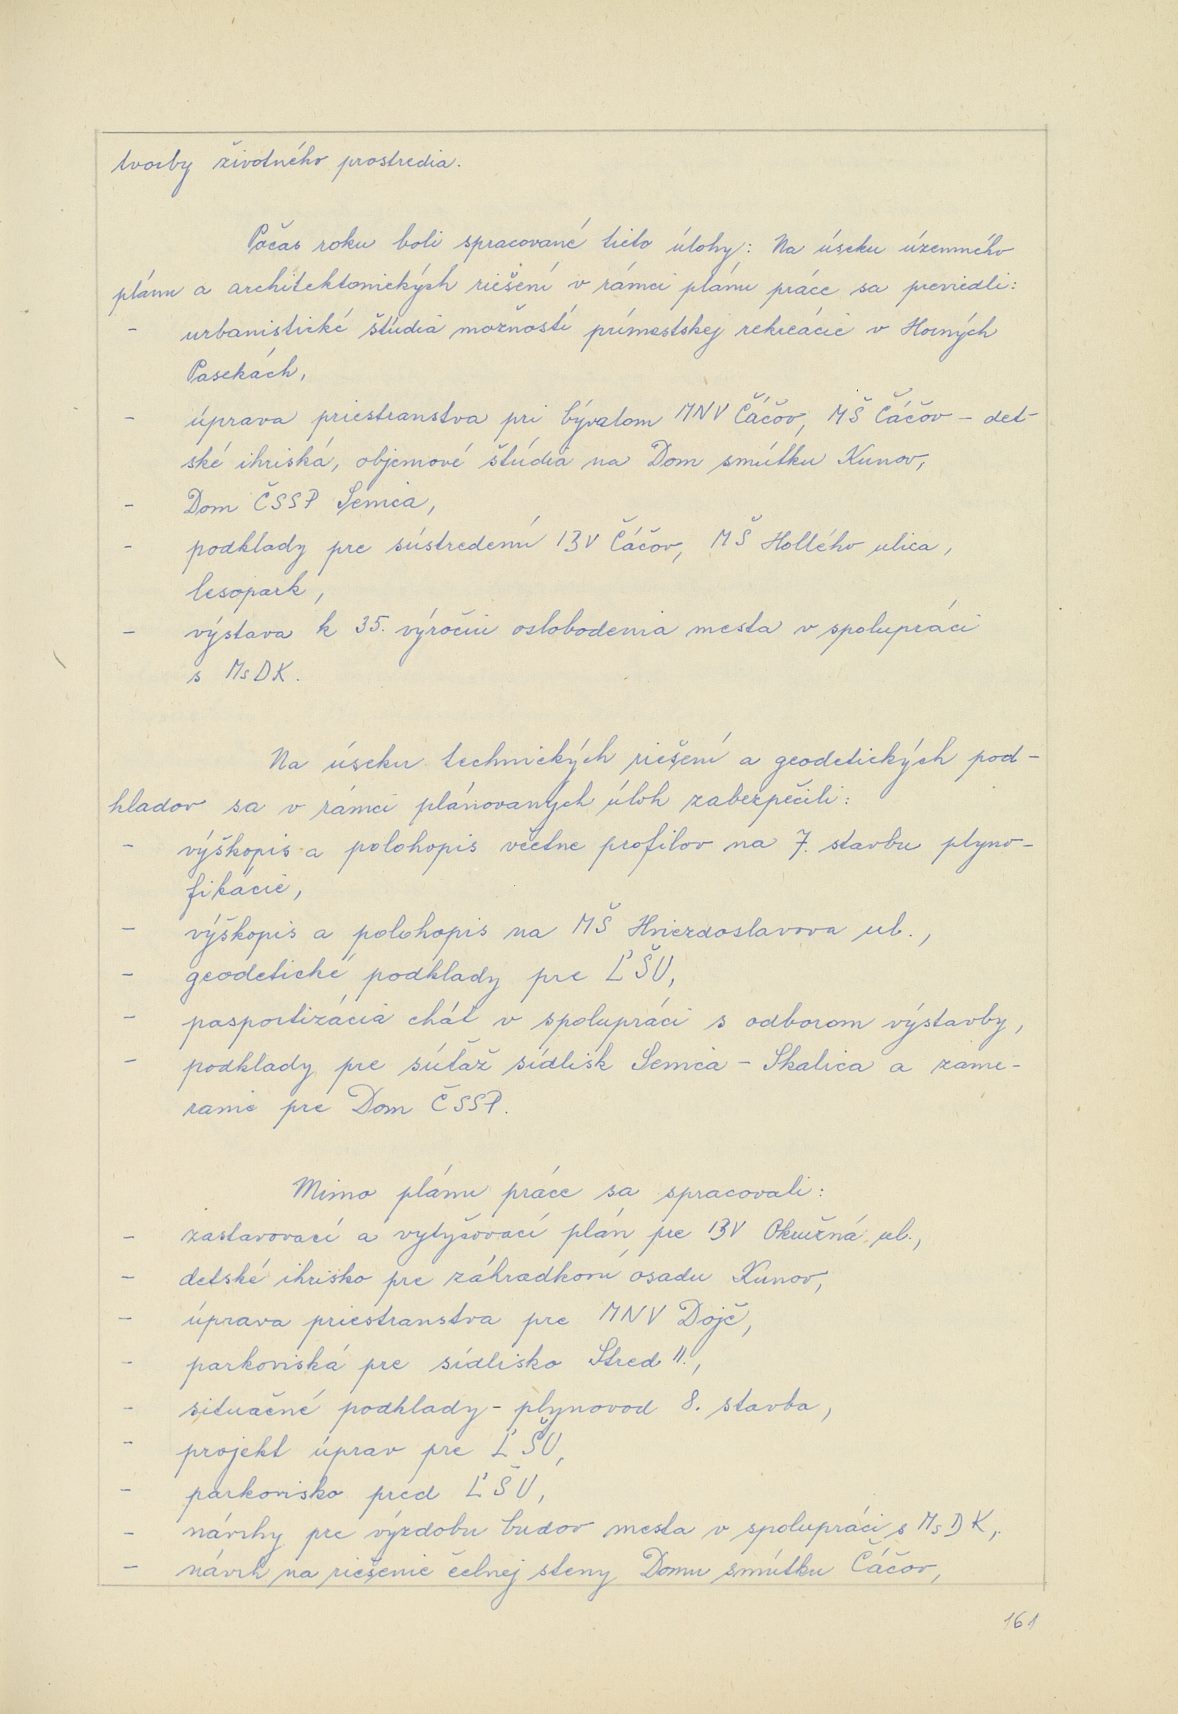 tvorby životného prostredia.
Počas roku boli spracované tieto úlohy: Na úseku územného
plánu a architektonických riešení v rámci plánu práce sa previedli:
- urbanistické štúdia možností prímestskej rekreácie v Horných
Pasekách,
- úprava priestranstva pri bývalom MNV Čáčov, MŠ Čáčov - det-
ské ihriská, objemové štúdia na Dom smútku Kunov,
- Dom ČSSP Senica,
- podklady pre sústredenú IBV Čáčov, MŠ Hollého ulica,
lesopark,
- výstava k 35. výročiu oslobodenia mesta v spolupráci
s MsDK.
Na úseku technických riešení a geodetických pod-
kladov sa v rámci plánovaných úloh zabezpečili:
- výškopis a polohopis včetne profilov na 7. stavbu plyno-
fikácie,
- výškopis a polohopis na MŠ Hviezdoslavova ul.,
- geodetické podklady pre ĽŠU,
- pasportizácia chát v spolupráci s odborom výstavby,
- podklady pre súťaž sídlisk Senica - Skalica a zame-
ranie pre Dom ČSSP.
Mimo plánu práce sa spracovali:
- zastavovací a vytyčovací plán pre IBV Okružná ul.,
- detské ihrisko pre záhradkovú osadu Kunov,
- úprava priestranstva pre MNV Dojč,
- parkoviská pre sídlisko Stred II.,
- situačné podklady - plynovod 8. stavba,
- projekt úprav pre ĽŠU,
- parkovisko pred ĽŠU,
- návrhy pre výzdobu budov mesta v spolupráci s MsDK,
- návrh na riešenie čelnej steny Domu smútku Čáčov,
161